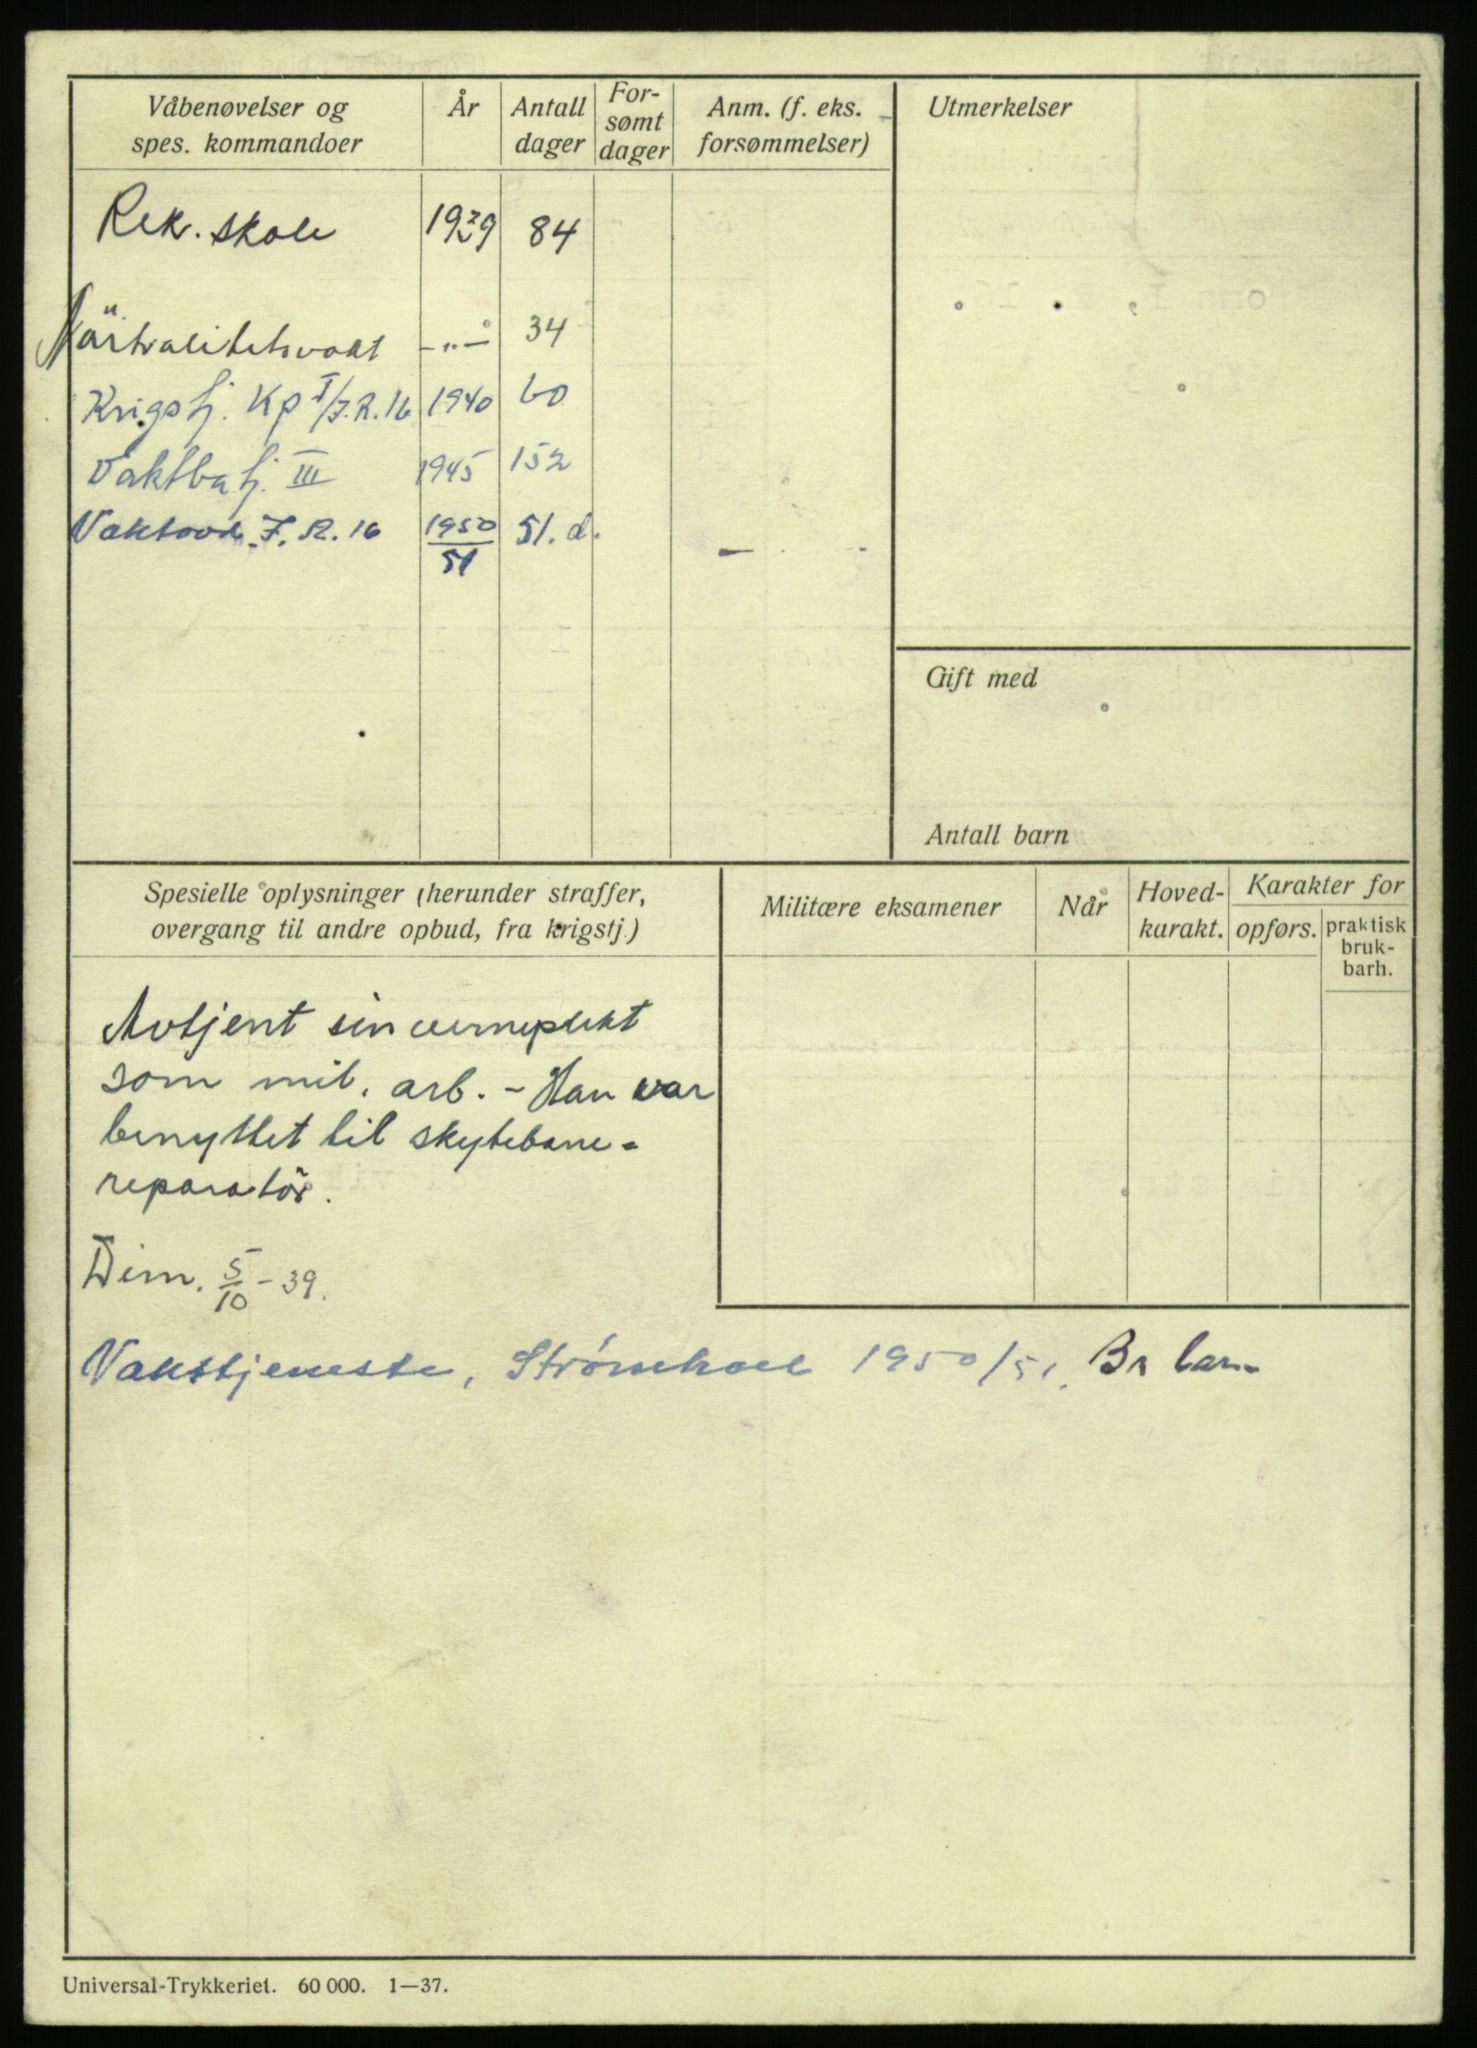 Våbenøvelser og
spes. kommandoer
År
Antall
dager
For-
sømt
dager
Anm. (f. eks.
forsømmelser)
Utmerkelser
Rek. skole 1939 84
Nöitralitetsvakt -"- 34
Krigstj. Kp I/J.R.16 1940 60
Vaktbatj. III 1945 152
Vaktavd. J.R. 16 1950/51 51. d. -
Gift med
Antall barn
Spesielle oplysninger (herunder straffer,
overgang til andre opbud, fra krigstj.)
Militære eksamener
Når
Hoved-
karakt.
Karakter for
opførs.
praktisk
bruk-
barh.
Avtjent sin verneplikt
som mil. arb. - Han var
benyttet til skytebane-
reparatör.
Dim. 5/10 - 39.
Vakttjeneste, 1950/51.
Universal-Trykkeriet. 60 000. 1—37.